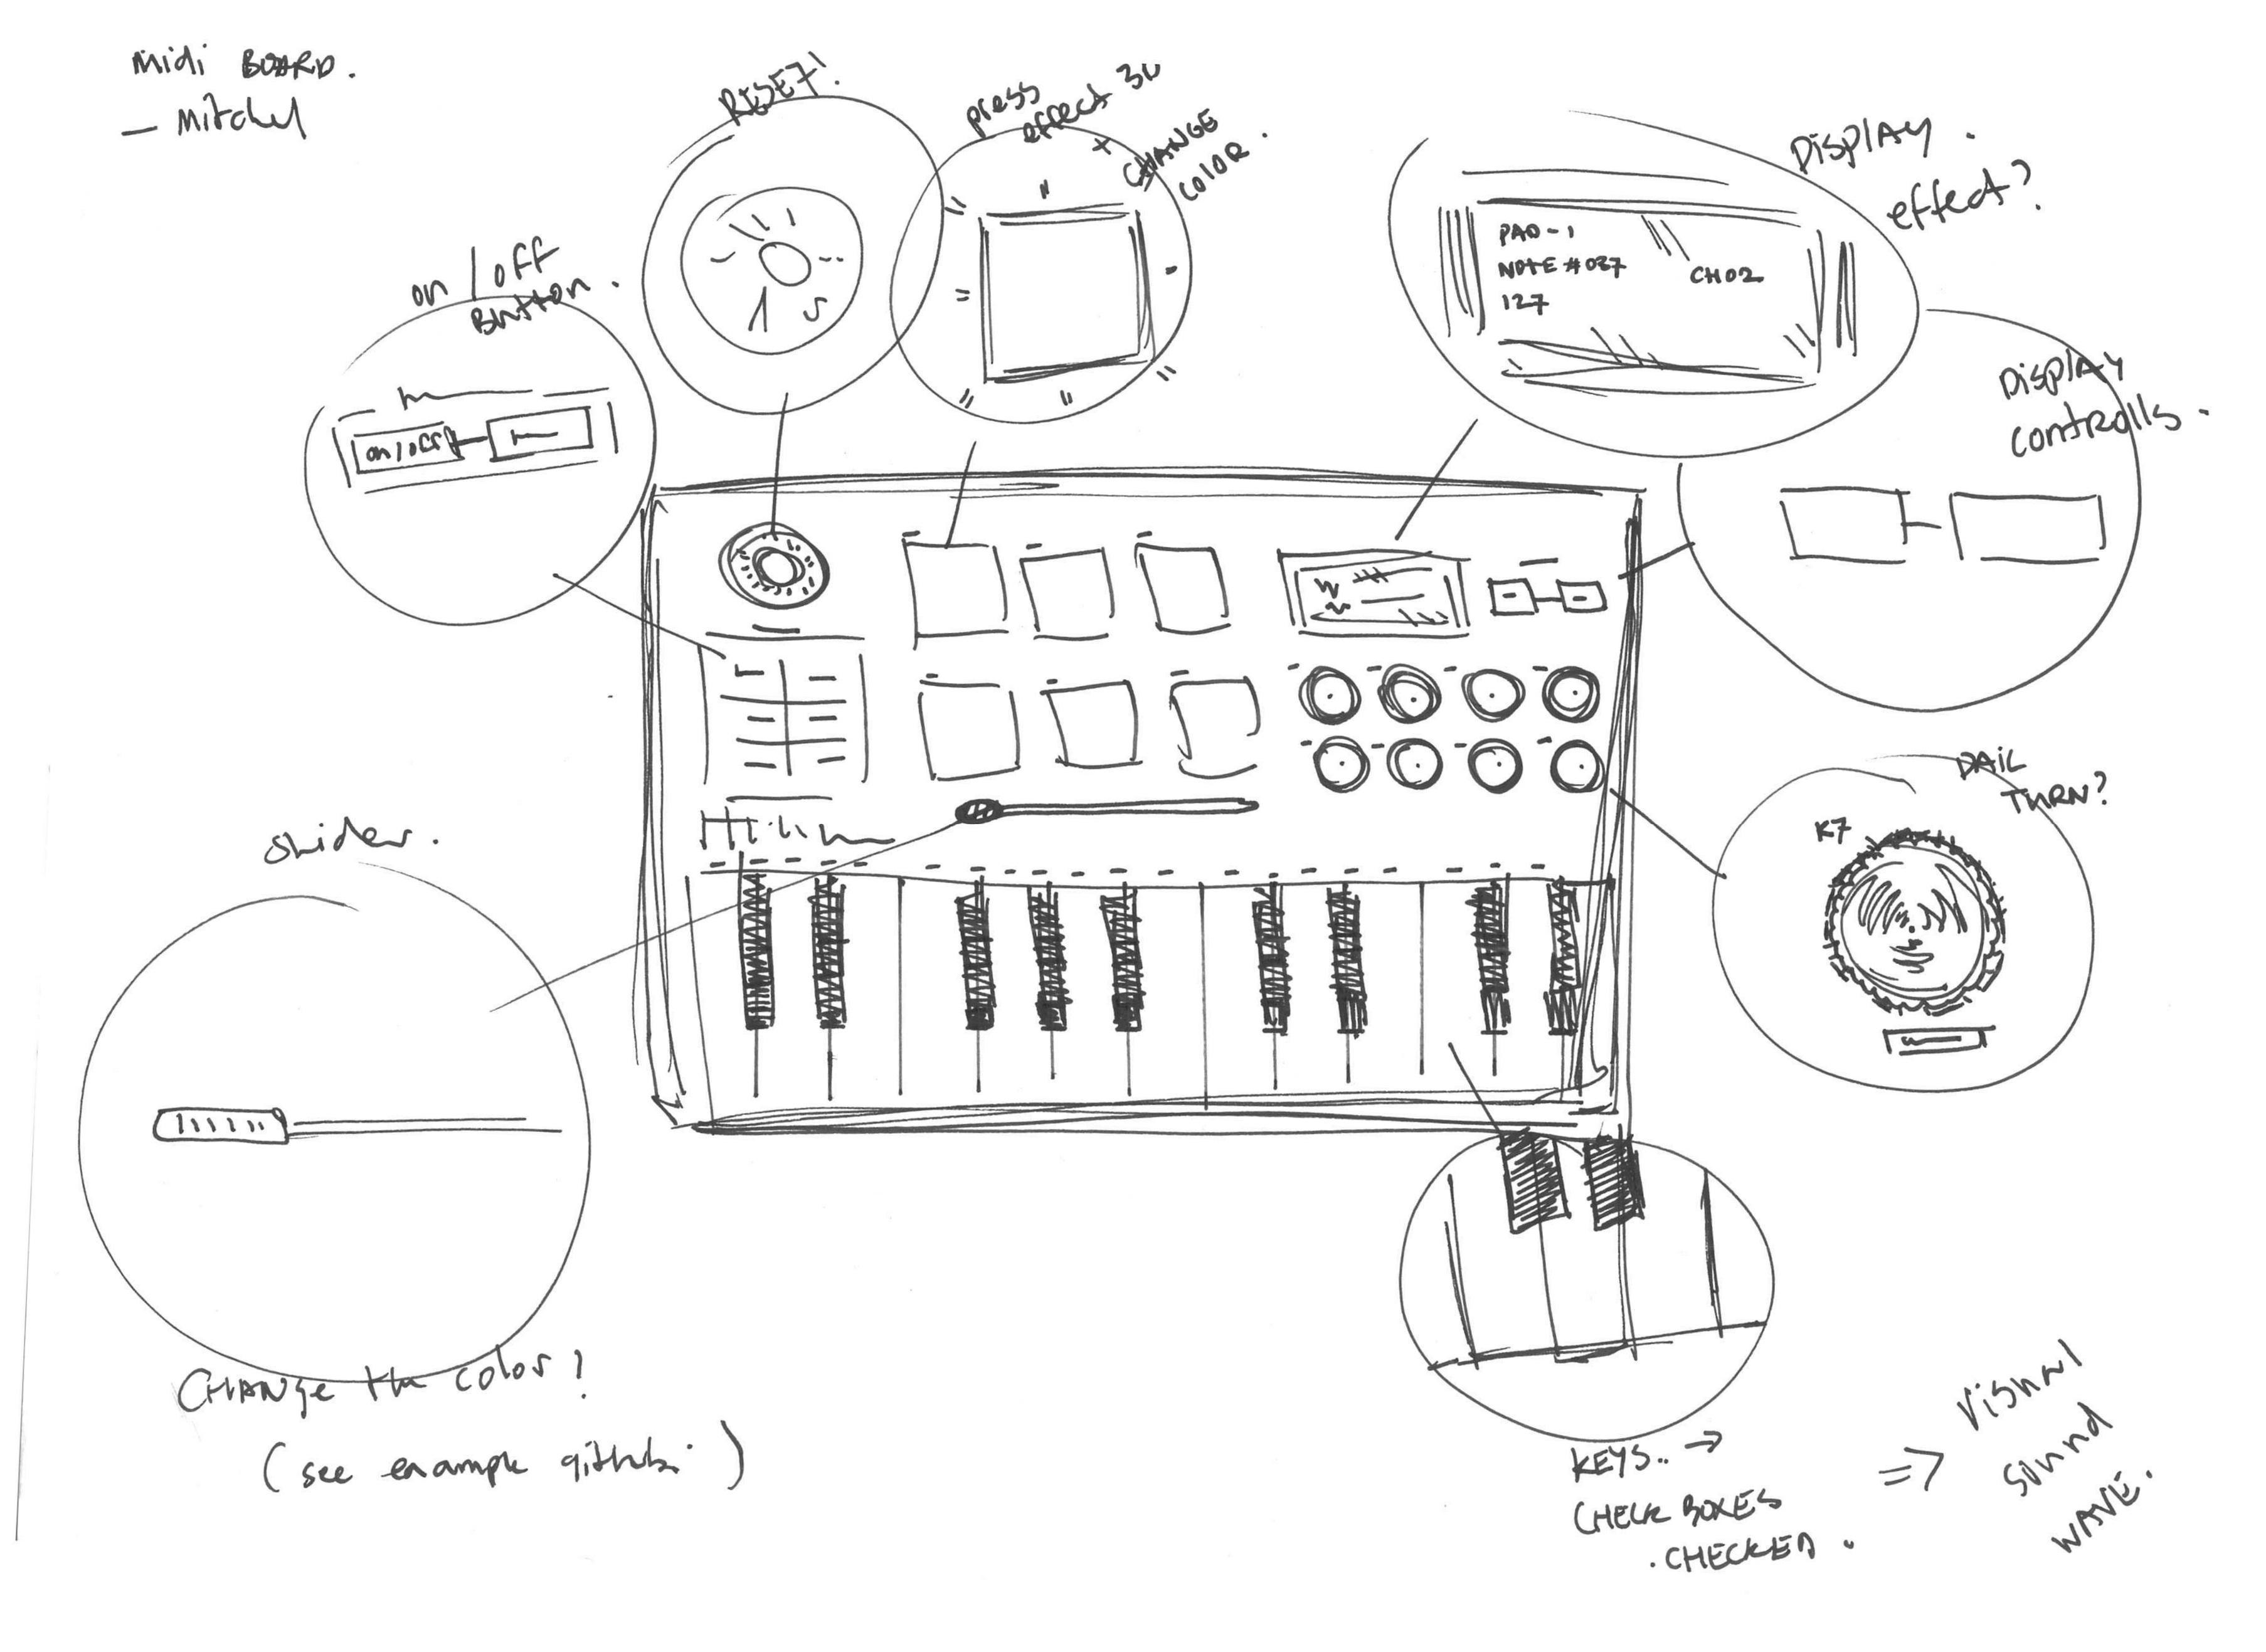 Midi BOARD.
— Mitchel
RESET!
press
effect 3D
+
CHANGE
COLOR.
DISPLAY.
effect?
PAD-1
NOTE #037
CH02
127
on / off
Button.
on/off
DISPLAY
controlls.
DAIL
TURN?
K7
slider.
CHANGE the color?
(see example github.)
KEYS.. →
CHECK BOXES
.CHECKED.
=> Visual
sound
WAVE.